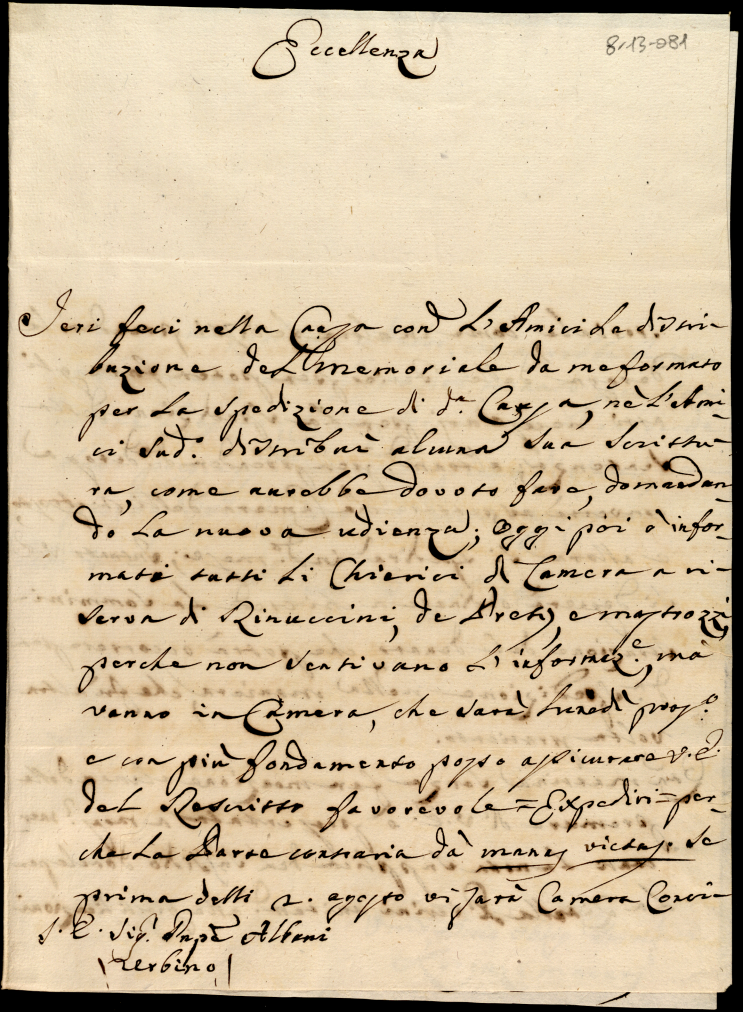 Eccellenza
8-13-081
Ieri feci nella Causa cond L'Amici la distri-
buzione dell memoriale da me formato
per la spedizione di d.a Causa, nè l'Ami-
ci sud.o distribuì alcuna sua scrittu-
ra, come aurebbe dovoto fare, domandan-
do la nuova udienza; Oggi poi ò infor-
mati tutti li Chierici di Camera a ri-
serva di Rinuccini, de Prets, e mastrozzi
perche non sentivano l'informaz.e, mà
vanno in Camera, che sarà lunedì pross.o
e con più fondamento posso assicurare V.E.
del Rescritto favorevole = Expediri = per-
che la Parte contraria dà manus victas. Se
prima delli 2. agosto vi sarà Camera Corri-
S. E. Sig.r Pnpe Albani
Urbino